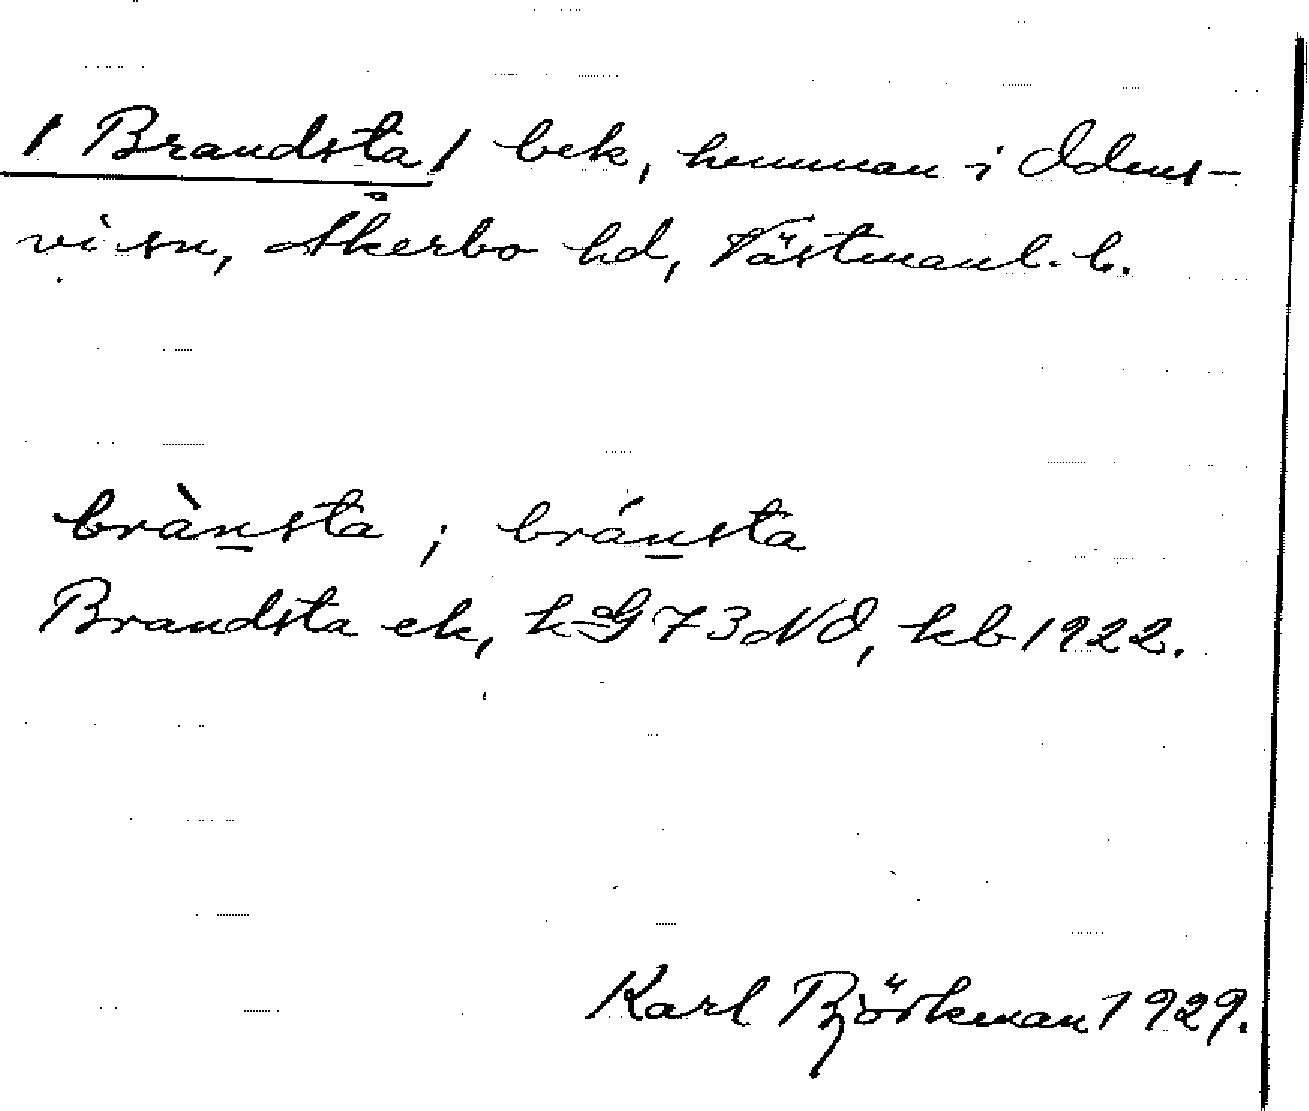 / Brandsta / bek, hemman i Odens-
vi sn, Åkerbo hd, Västmanl. l.
brànsta ; bránsta
Brandsta ek, k G 73 NO, kb 1922.
Karl Björkman 1929.